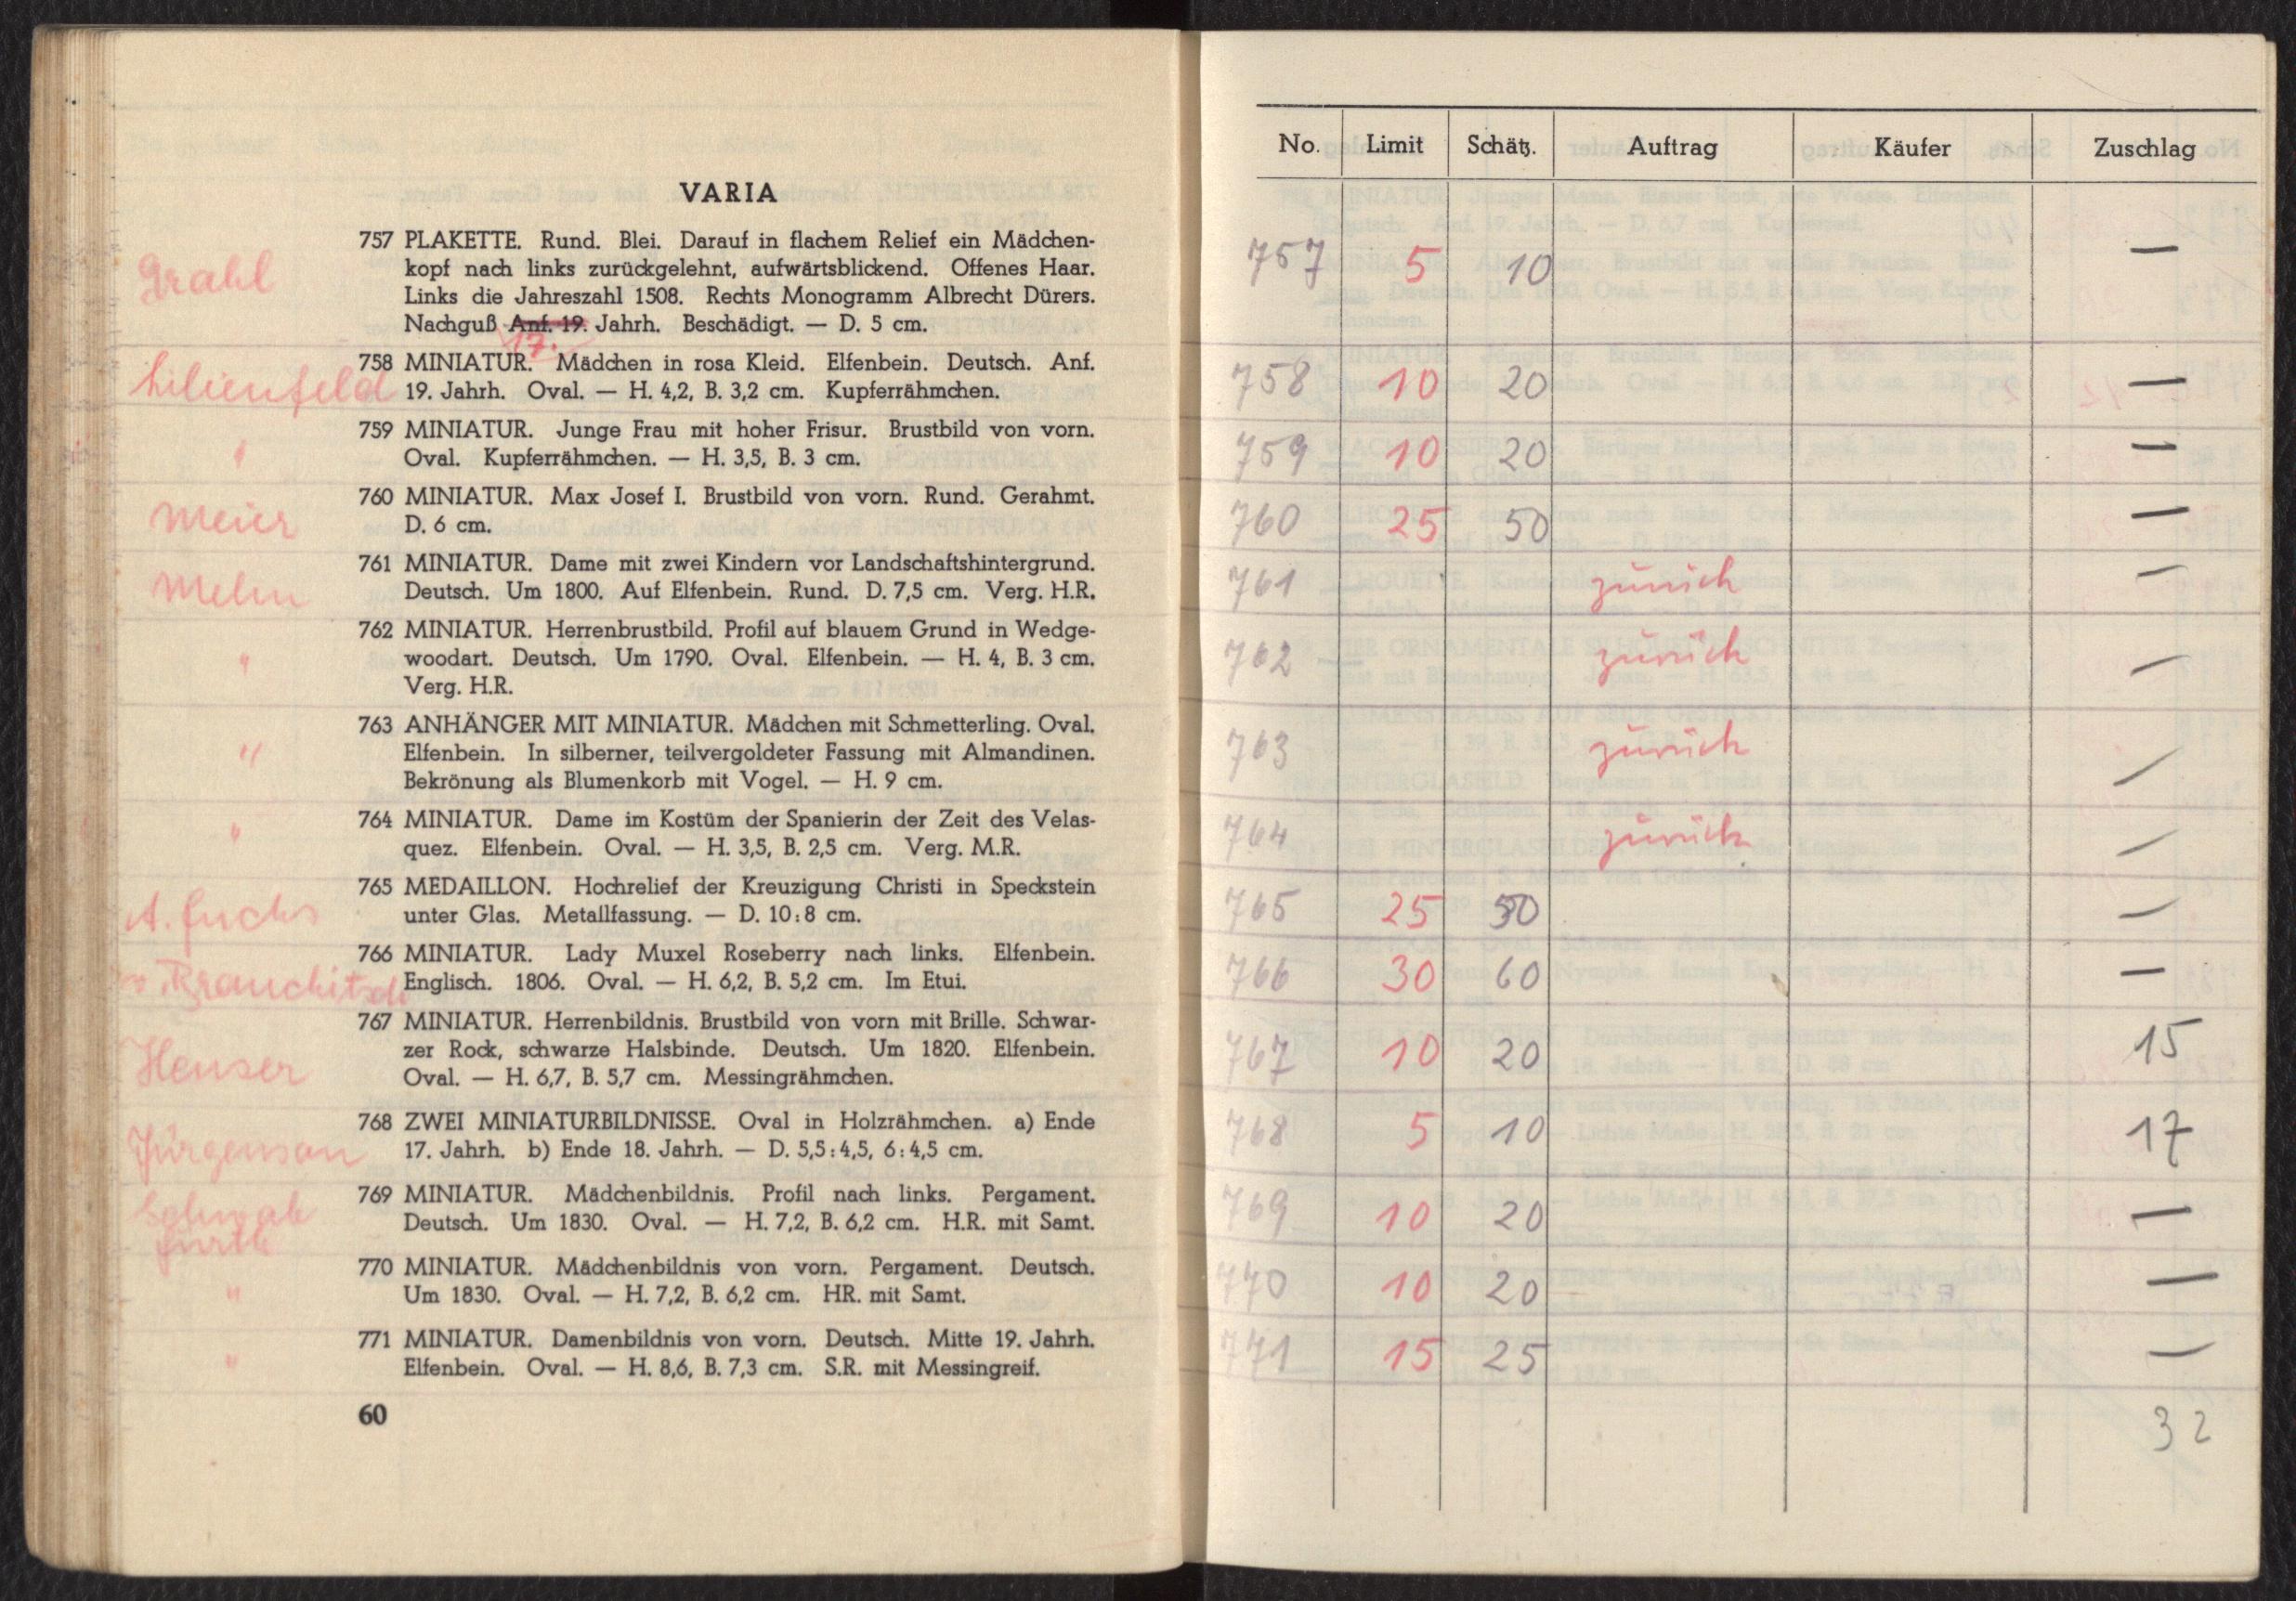 VARIA
Grahl
757 PLAKETTE. Rund. Blei. Darauf in flachem Relief ein Mädchen-
kopf nach links zurückgelehnt, aufwärtsblickend. Offenes Haar.
Links die Jahreszahl 1508. Rechts Monogramm Albrecht Dürers.
Nachguß Anf. 19. Jahrh. Beschädigt. — D. 5 cm.
17.
Lilienfeld
758 MINIATUR. Mädchen in rosa Kleid. Elfenbein. Deutsch. Anf.
19. Jahrh. Oval. — H. 4,2, B. 3,2 cm. Kupferrähmchen.
"
759 MINIATUR. Junge Frau mit hoher Frisur. Brustbild von vorn.
Oval. Kupferrähmchen. — H. 3,5, B. 3 cm.
Meier
760 MINIATUR. Max Josef I. Brustbild von vorn. Rund. Gerahmt.
D. 6 cm.
761 MINIATUR. Dame mit zwei Kindern vor Landschaftshintergrund.
Deutsch. Um 1800. Auf Elfenbein. Rund. D. 7,5 cm. Verg. H.R.
"
762 MINIATUR. Herrenbrustbild. Profil auf blauem Grund in Wedge-
woodart. Deutsch. Um 1790. Oval. Elfenbein. — H. 4, B. 3 cm.
Verg. H.R.
"
763 ANHÄNGER MIT MINIATUR. Mädchen mit Schmetterling. Oval.
Elfenbein. In silberner, teilvergoldeter Fassung mit Almandinen.
Bekrönung als Blumenkorb mit Vogel. — H. 9 cm.
"
764 MINIATUR. Dame im Kostüm der Spanierin der Zeit des Velas-
quez. Elfenbein. Oval. — H. 3,5, B. 2,5 cm. Verg. M.R.
A. Fuchs
765 MEDAILLON. Hochrelief der Kreuzigung Christi in Speckstein
unter Glas. Metallfassung. — D. 10:8 cm.
v. Brauchitsch
766 MINIATUR. Lady Muxel Roseberry nach links. Elfenbein.
Englisch. 1806. Oval. — H. 6,2, B. 5,2 cm. Im Etui.
Heuser
767 MINIATUR. Herrenbildnis. Brustbild von vorn mit Brille. Schwar-
zer Rock, schwarze Halsbinde. Deutsch. Um 1820. Elfenbein.
Oval. — H. 6,7, B. 5,7 cm. Messingrähmchen.
Jürgenson
768 ZWEI MINIATURBILDNISSE. Oval in Holzrähmchen. a) Ende
17. Jahrh. b) Ende 18. Jahrh. — D. 5,5:4,5, 6:4,5 cm.
Schwab
Fürth
769 MINIATUR. Mädchenbildnis. Profil nach links. Pergament.
Deutsch. Um 1830. Oval. — H. 7,2, B. 6,2 cm. H.R. mit Samt.
"
770 MINIATUR. Mädchenbildnis von vorn. Pergament. Deutsch.
Um 1830. Oval. — H. 7,2, B. 6,2 cm. HR. mit Samt.
"
771 MINIATUR. Damenbildnis von vorn. Deutsch. Mitte 19. Jahrh.
Elfenbein. Oval. — H. 8,6, B. 7,3 cm. S.R. mit Messingreif.
60
No. Limit Schätz. Auftrag Käufer Zuschlag
757 5 10 —
758 10 20 —
759 10 20 —
760 25 50 —
761 zurück —
762 zurück —
763 zurück —
764 zurück —
765 25 50 —
766 30 60 —
767 10 20 15
768 5 10 17
769 10 20 —
770 10 20 —
771 15 25 —
32